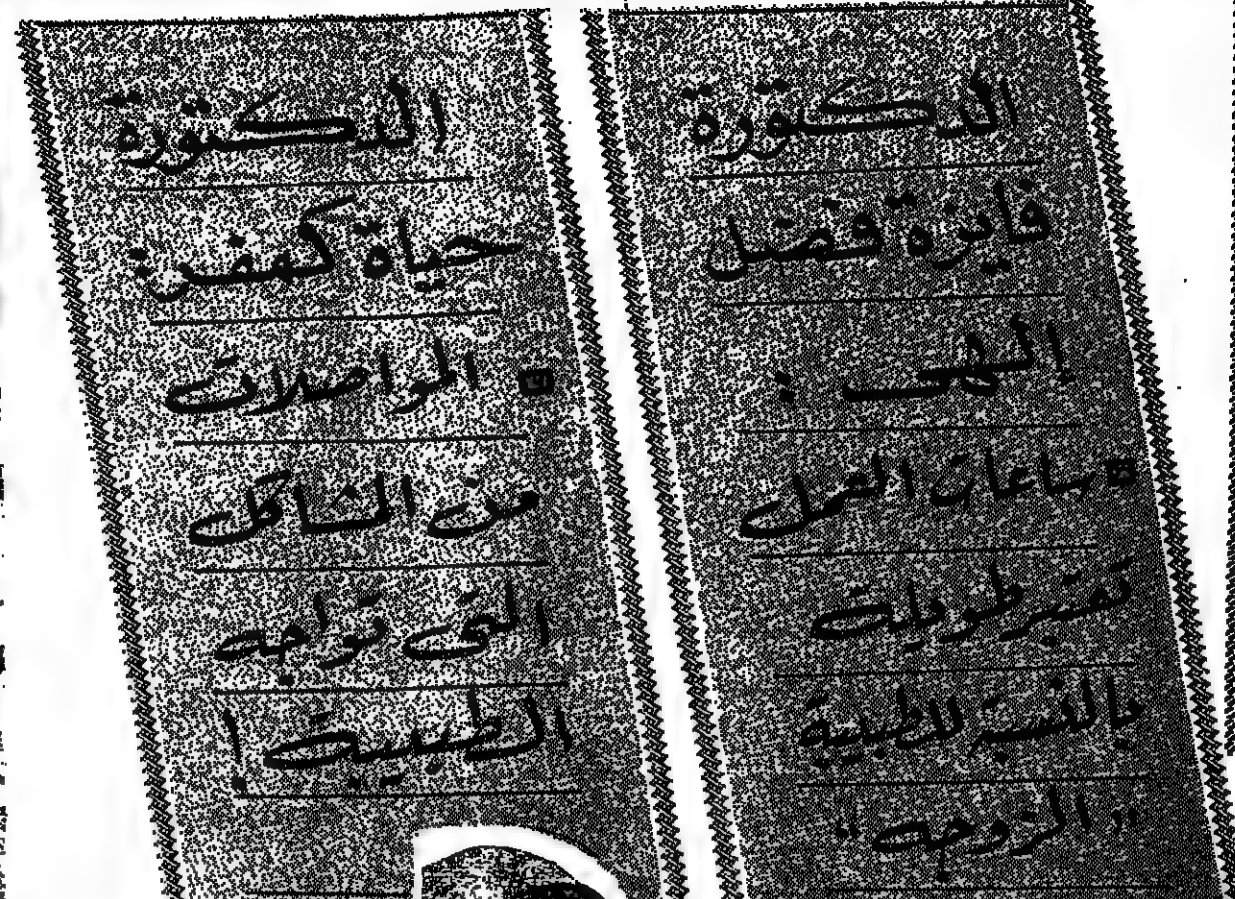 الدكتورة
فايزة فضل
إلهى :
ساعات العمل
تعتبر طويلة
بالنسبة للطبيبة
"الزوجه"
الدكتورة
حياة كهفر :
المواصلات
من المشاكل
التى تواجه
الطبيبة !